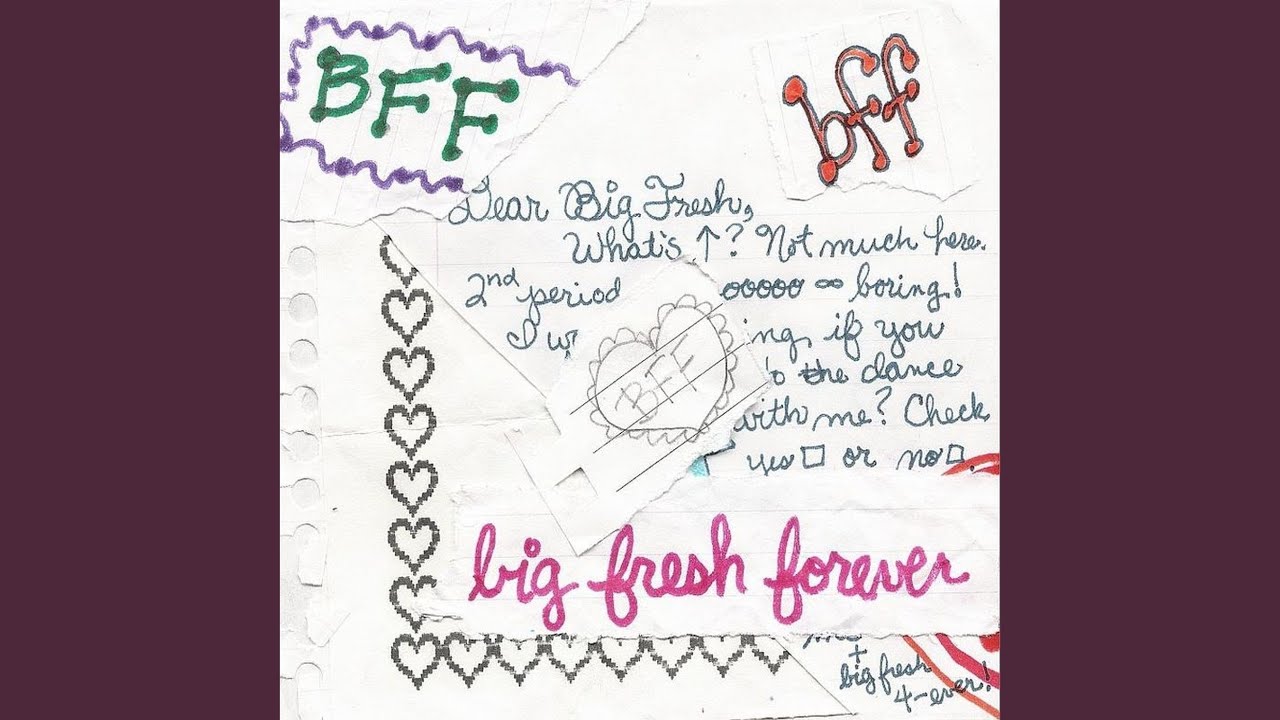 BFF
bff
Dear Big Fresh,
What's ↑? Not much here.
2nd period ooooo ∞ boring!
I w ing, if you
o the dance
with me? Check
yes □ or no □.
BFF
big fresh forever
me
+
big fresh
4-ever!